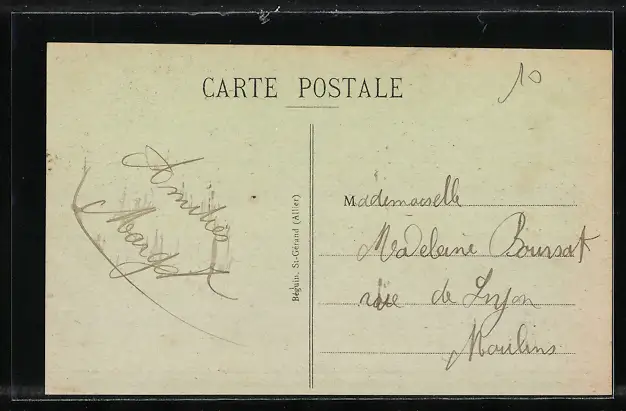 CARTE POSTALE
10
Amitiés
Margot
Béguin, St-Gérand (Allier)
Mademoiselle
Madeleine Boursat
rue de Lyon
Moulins